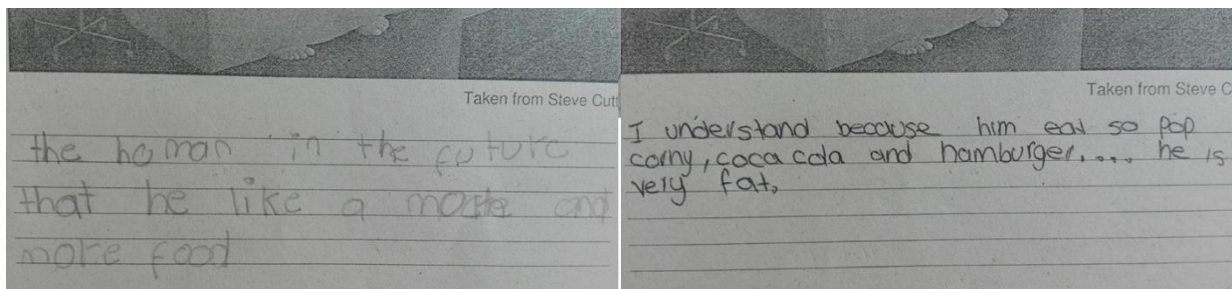 Taken from Steve Cutt
the homan in the future
that he like a more and
more food
Taken from Steve C
I understand because him eat so pop
corny, coca cola and hamburger.... he is
very fat.